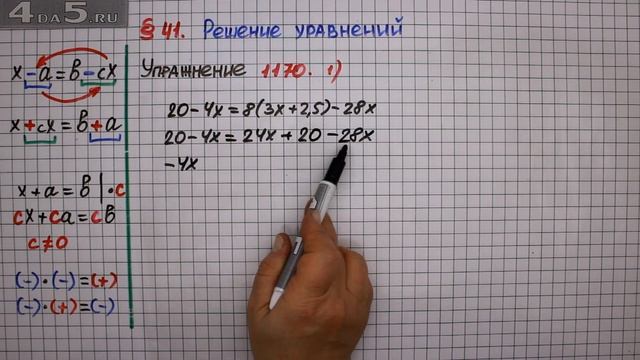 4DA5.RU
§ 41. Решение уравнений
Упражнение 1170. 1)
x-a=b-cx
x+cx=b+a
x+a=b |·c
cx+ca=cb
c≠0
(-)·(-)=(+)
(-)·(+)=(-)
20-4x=8(3x+2,5)-28x
20-4x=24x+20-28x
-4x